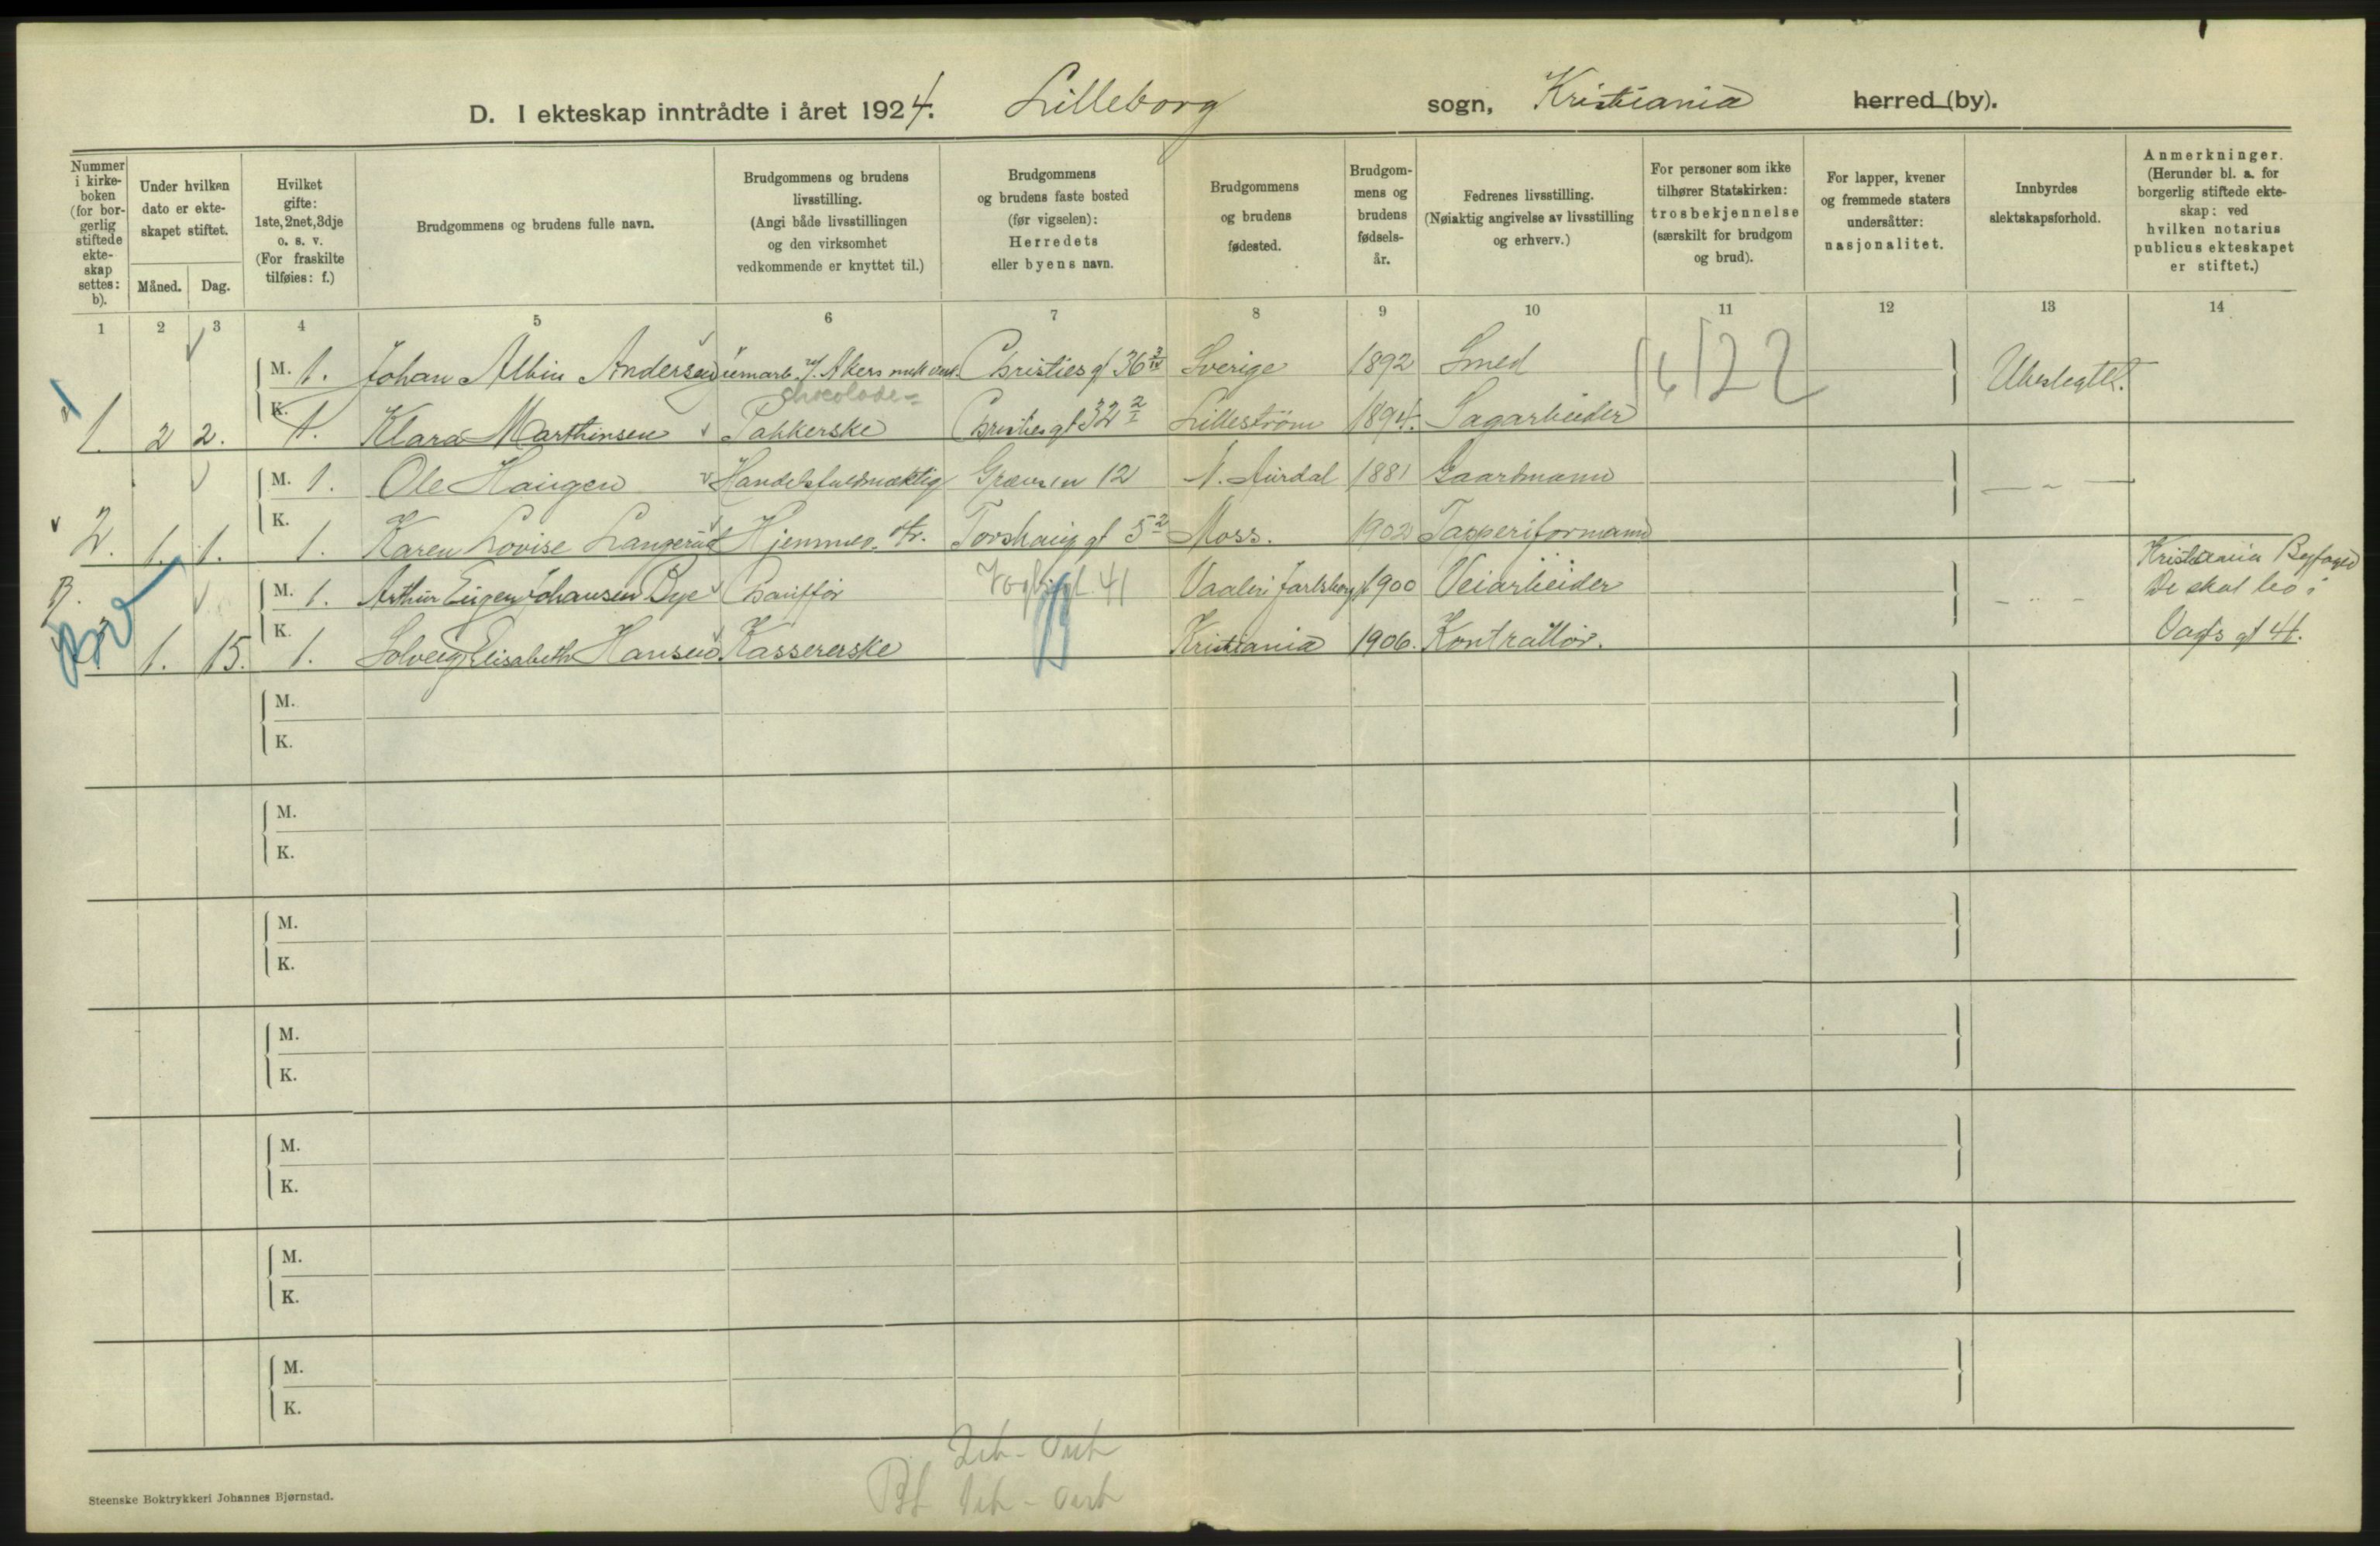 D. I ekteskap inntrådte i året 1924. Lilleborg sogn, Kristiania herred (by).
Nummer i kirkeboken (for borgerlig stiftede ekteskap settes: b).
Under hvilken dato er ekteskapet stiftet.
Måned. Dag.
Hvilket gifte: 1ste, 2net, 3dje o. s. v. (For fraskilte tilføies: f.)
Brudgommens og brudens fulle navn.
Brudgommens og brudens livsstilling. (Angi både livsstillingen og den virksomhet vedkommende er knyttet til.)
Brudgommens og brudens faste bosted (før vigselen): Herredets eller byens navn.
Brudgommens og brudens fødested.
Brudgommens og brudens fødselsår.
Fedrenes livsstilling. (Nøiaktig angivelse av livsstilling og erhverv.)
For personer som ikke tilhører Statskirken: trosbekjennelse (særskilt for brudgom og brud).
For lapper, kvener og fremmede staters undersåtter: nasjonalitet.
Innbyrdes slektskapsforhold.
Anmerkninger. (Herunder bl. a. for borgerlig stiftede ekteskap: ved hvilken notarius publicus ekteskapet er stiftet.)
1 2 3 4 5 6 7 8 9 10 11 12 13 14
M. 1. Johan Albin Andersen Jernarb. v/ Akers mek verk. Christies gt 36 Sverige 1892 Smed Ubeslegtet.
chocolade-
1. 2 2. K. 1. Klara Marthinsen Pakkerske Christies gt 32 Lillestrøm 1894. Sagarbeider
M. 1. Ole Haugen Handelsfuldmæktig Grænsen 12 N. Aurdal 1881 Gaardmann — " —
2. 1. 1. K. 1. Karen Lovise Langerud Hjemmev. Torshaug gt 5 Moss. 1902 Tapperiformann
B. M. 1. Arthur Eugen Johansen Bye Chauffør Vogts gt. 41 Vaaler i Jarlsberg 1900 Veiarbeider — " — Kristiania Byfoged
De skal bo i
1. 15. K. 1. Solveig Elisabeth Hansen Kassererske Kristiania 1906. Kontrallør. Vogts gt 41.
M.
K.
M.
K.
M.
K.
M.
K.
M.
K.
M.
K.
M.
K.
Steenske Boktrykkeri Johannes Bjørnstad.